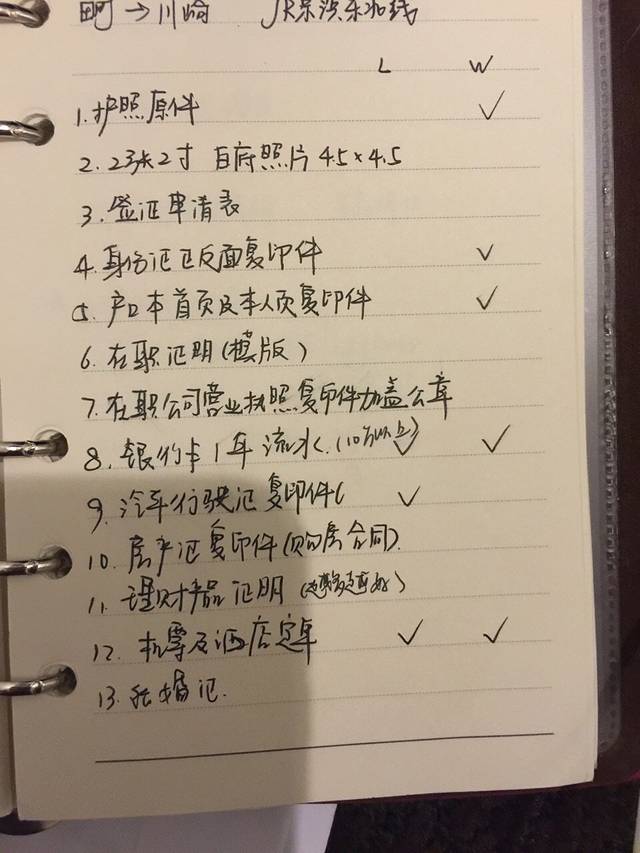 町→川崎 JR京浜东北线
L W
1.护照原件 ✓
2. 2张2寸 白底照片 4.5×4.5
3. 签证申请表
4. 身份证正反面复印件 ✓
5. 户口本首页及本人页复印件 ✓
6. 在职证明(模版)
7. 在职公司营业执照复印件加盖公章
8. 银行卡1年流水(10万以上) ✓ ✓
9. 汽车行驶证复印件( ✓
10. 房产证复印件(购房合同)
11. 理财产品证明(
12. 机票及酒店定单 ✓ ✓
13. 结婚证.